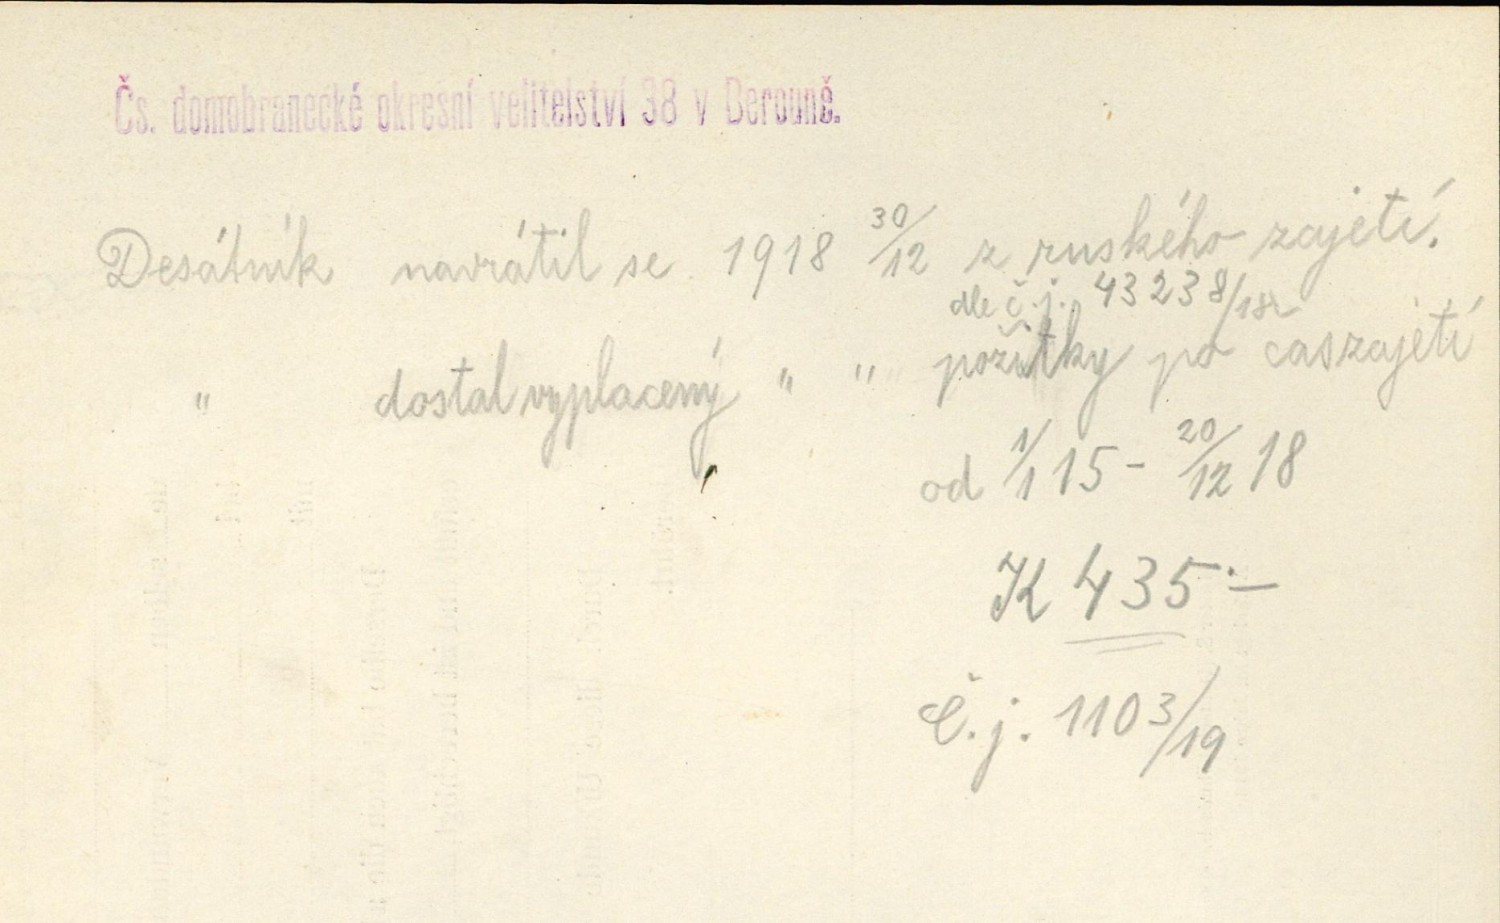 Čs. domobranecké okresní velitelství 38 v Berouně.
Desátník navrátil se 1918 30/12 z ruského zajetí.
dle č. j. 43238/18
" dostal vyplacený " " požitky po čas zajetí
od 1/1 15 - 20/12 18
K 435·—
Č. j. 1103/19